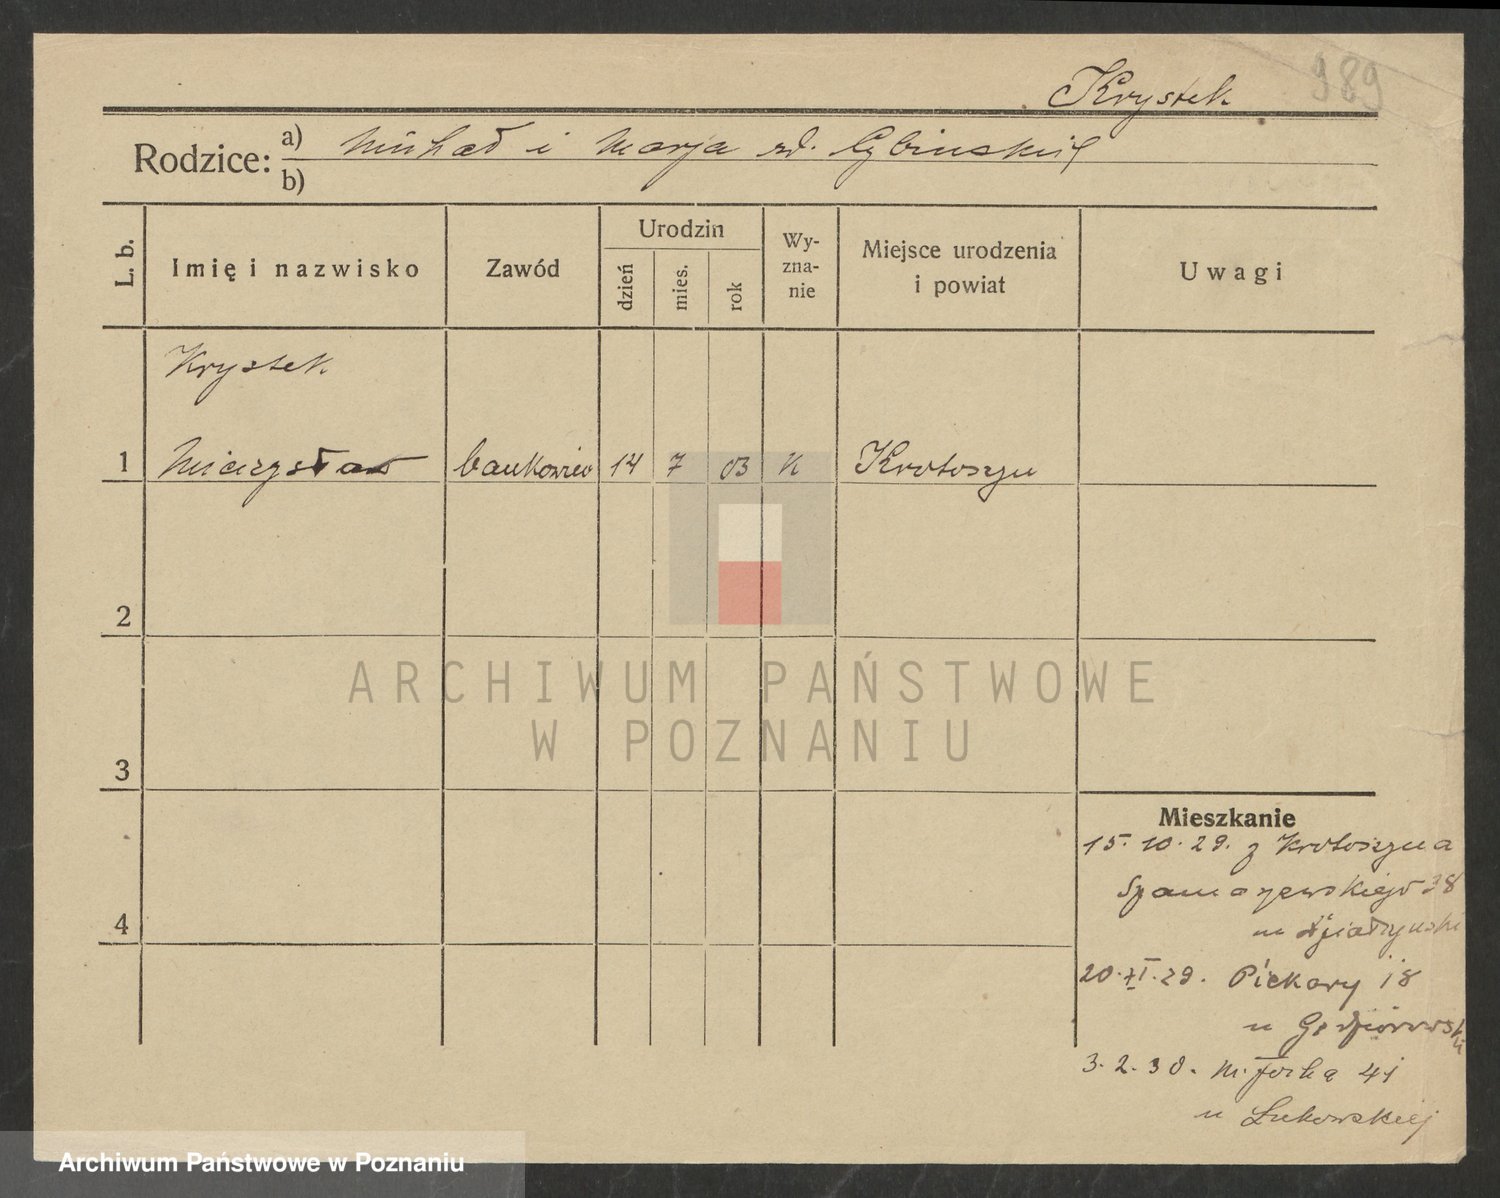 989
Krystek
Rodzice: a) Michał i Marja zd. Gbinskij
b)
L. b.
Imię i nazwisko
Zawód
Urodzin
dzień
mies.
rok
Wy-
zna-
nie
Miejsce urodzenia
i powiat
Uwagi
Krystek
1 Mieczysław bankowiec 14 7 03 K Krotoszyn
2
ARCHIWUM PAŃSTWOWE
W POZNANIU
3
Mieszkanie
15.10.29. z Krotoszyna
38
4
u
20.XI.29. Piekary 18
u
3.2.30. M. Focha 41
u Lukowskiej
Archiwum Państwowe w Poznaniu